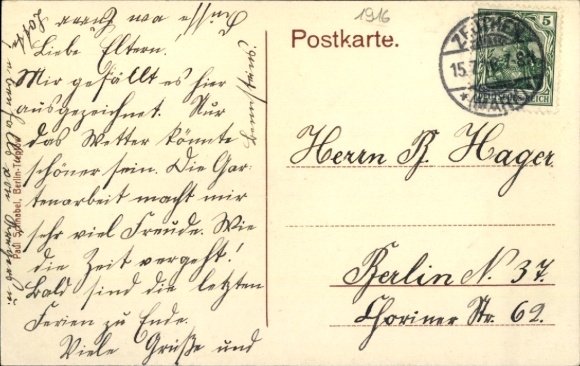 Liebe Eltern!
Mir gefällt es hier
ausgezeichnet. Nur
das Wetter könnte
schöner sein. Die Gar-
tenarbeit macht mir
sehr viel Freude. Wie
die Zeit vergeht!
Bald sind die letzten
Ferien zu Ende.
Viele Grüße und
Küsse von Eurer
Lotte
1916
Postkarte.
ZEUTHEN
15.7.16.7-8N
*(MARK)
5
DEUTSCHES REICH
Herrn B. Hager
Berlin N. 37.
Choriner Str. 62.
Paul Schnabel, Berlin-Treptow